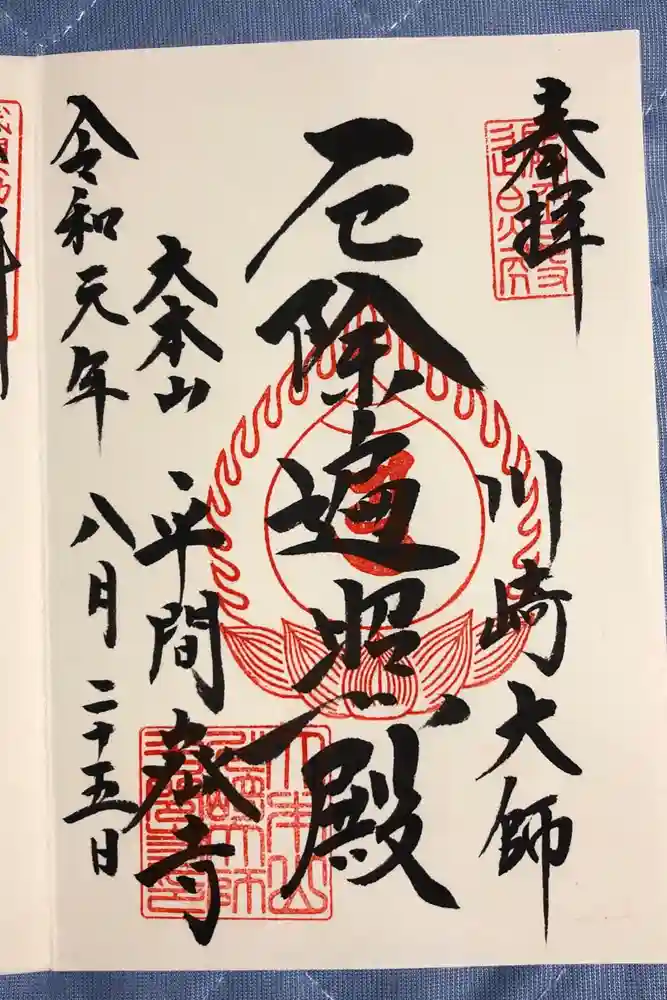 奉拝
川崎大師
厄除遍照殿
大本山 平間寺
令和元年 八月 二十五日